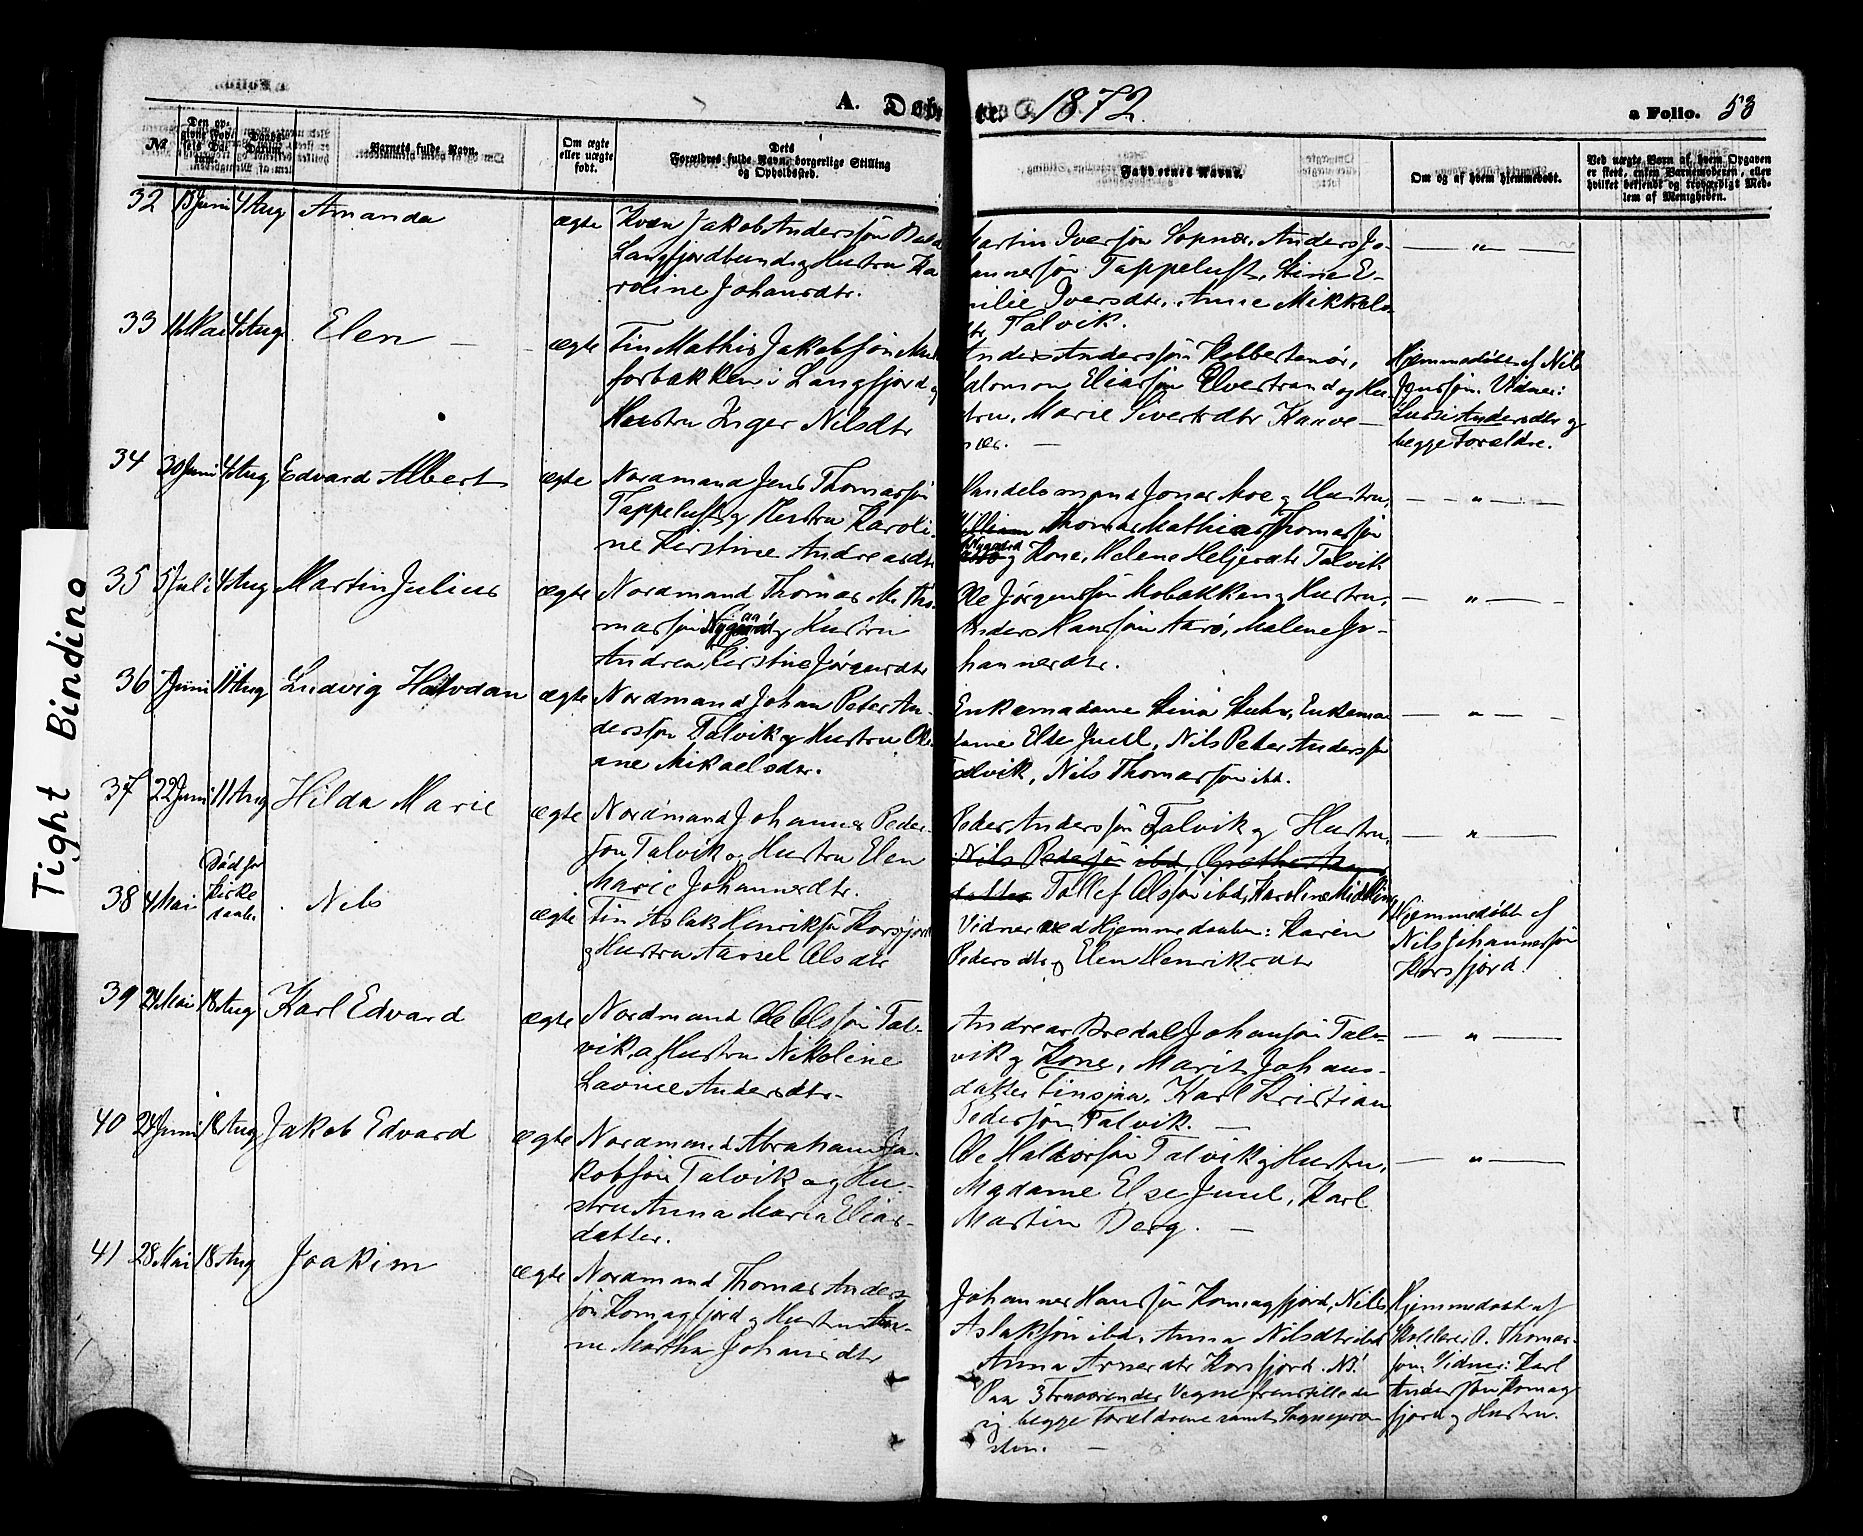 A. Døbte. 1872. a Folio. 53
No.
Den opgivne Fødsels Datum.
Daabs Datum.
Barnets fulde Navn.
Om ægte eller uægte født.
Dets Forældres fulde Navn, borgerlige Stilling og Opholdssted.
Faddernes Navne.
Om og af hvem hjemmedøbt.
Ved uægte Børn af hvem Opgaven er skeet, enten Barnemoderen, eller hvilket bekjendt og troværdigt Medlem af Menigheden.
32 13 Juni 4 Aug Amanda ægte
Kvæn Jakob Andersøn
Langfjordbund og Hustru Ka
roline Johansdtr.
Martin Iversøn Sopnæs, Anders Jo-
hannesøn Tappeluft, Stina E-
milie Iversdtr, Anne Mikkels
dtr Talvik.
— " —
33 11 Mai 4 Aug Elen ægte
Fin Mathis Jakobsøn
forbakken i Langfjord og
Hustru Inger Nilsdtr
Anders Andersøn Kobbertnær,
Salomon Eliasøn Elvestrand og Hu-
stru, Marie Sivertsdtr
næs. —
Hjemmedøbt af Nils
Jonssøn. Vidner:
Andersdtr og
begge Forældre.
34 30 Juni 4 Aug Edvard Albert ægte
Nordmand Jens Thomassøn
Tappeluft og Hustru Karoli-
ne Kirstine Andreasdtr
Handelsmand Jonas Moe og Hustru,
Thomas Mathias Thomassøn
og Kone, Malene Heljesdtr Talvik
— " —
35 5 Juli 4 Aug Martin Julius ægte
Nordmand Thomas M. Tho-
masøn og Hustru
Andrea Kirstine Jørgensdtr
Ole Jørgensøn Mobakken og Hustru,
Anders Hansøn Aarø, Malene Jo-
hannesdtr.
— " —
36 7 Juni 11 Aug Ludvig Halvdan ægte
Nordmand Johan Peter An-
dersøn Talvik og Hustru Ol-
ane Mikaelsdtr.
Enkemadame Stina Buhr, Enkema-
dame Else Juul, Nils Peter Andersøn
Talvik, Nils Thomassøn ibd.
— " —
37 22 Juni 11 Aug Hilda Marie ægte
Nordmand Johannes Peder-
søn Talvik og Hustru Elen
Marie Johannesdtr.
Peder Andersøn Talvik og Hustru,
Nils Pedersøn ibd, Grethe
datter Tollef Olsøn ibd, Karoline
— " —
38 4 Mai Død før Kirkedaaben Nils ægte
Fin Aslak Henriksøn Korsfjord
og Hustru Olsdtr
Vidner ved Hjemmedaaben: Karen
Pedersdtr og Elen Henriksdtr
Hjemmedøbt af
Nils Johannesøn
Korsfjord.
39 24 Mai 18 Aug Karl Edvard ægte
Nordmand Ole Olsøn Tal-
vik og Hustru Nikoline
Lavine Andersdtr-
Andreas Bredal Johansøn Tal-
vik og Kone, Marit Johans-
datter Finsjaa, Karl Kristian
Pedersøn Talvik. —
— " —
40 24 Juni 18 Aug Jakob Edvard ægte
Nordmand Abraham Ja-
kobsøn Talvik og Hu-
stru Anna Maria Elias-
datter.
Ole Haldorsøn Talvik og Hustru,
Madame Else Juul, Karl
Martin Berg. —
— " —
41 28 Mai 18 Aug Joakim ægte
Nordmand Thomas Anders-
søn Komagfjord og Hustru An-
ne Martha Johansdtr
Johannes Hansøn Komagfjord, Nils
Aslaksøn ibd, Anna Nilsdtr ibd
Anna Arnesdtr Korsfjord. NB.
Paa 3 Fraværendes Vegne fremstillede
sig begge Forældrene samt Sognepræ-
sten. —
Hjemmedøbt af
Skolelærer O. Thomas-
søn. Vidner: Karl
Andersøn Komag
fjord og Hustru.
Tight Binding